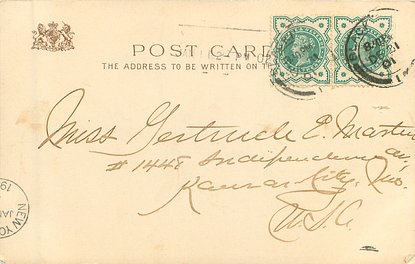 POST CARD
THE ADDRESS TO BE WRITTEN ON
Miss Gertrude E. Martin
# 1448 Independence av.
Kansas City, Mo.
U.S.A.
NEW YO
JAN
19